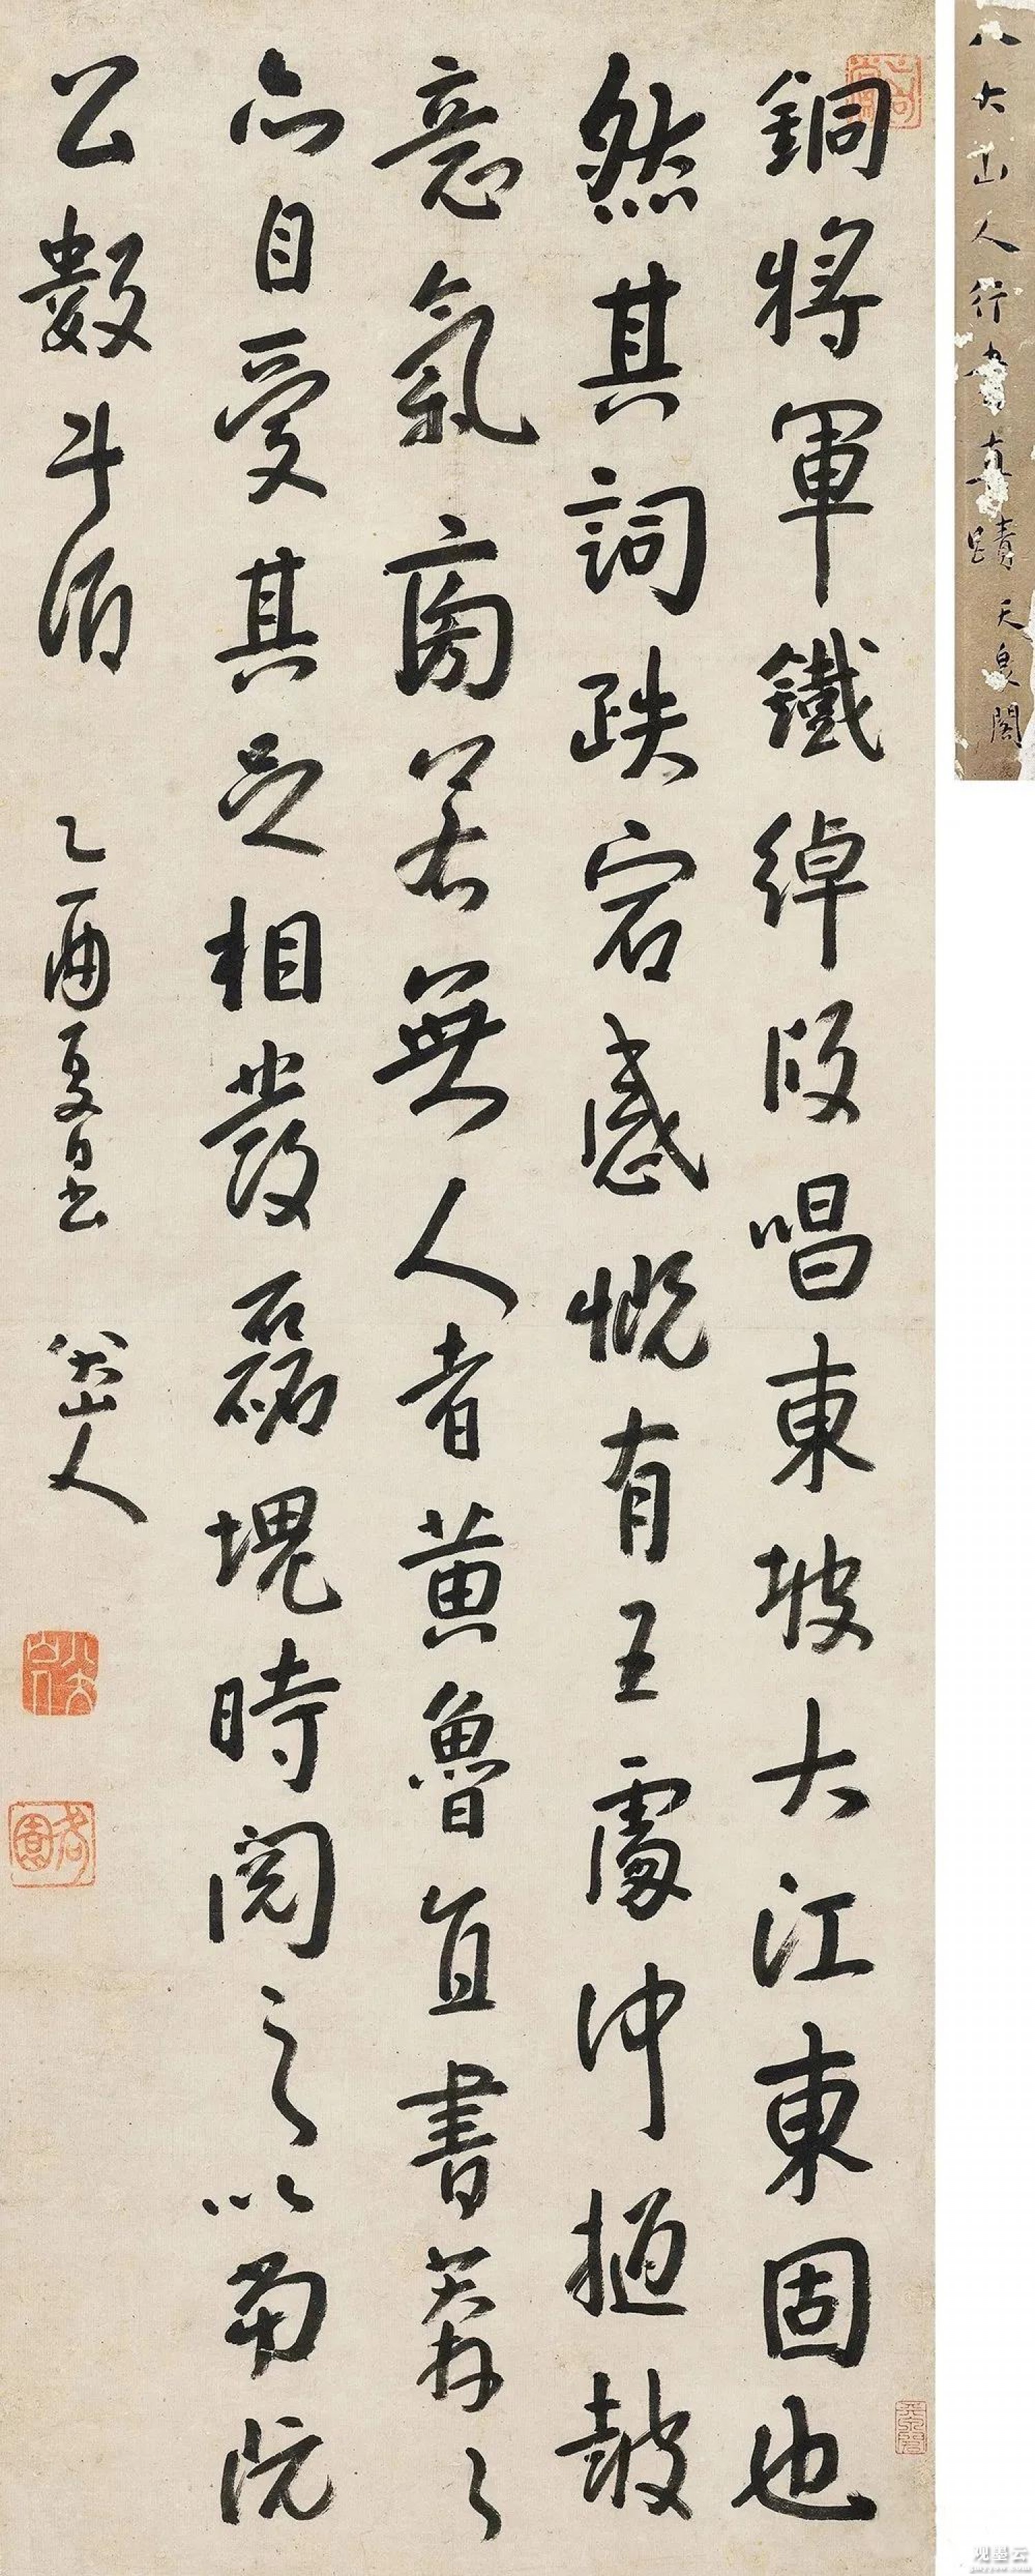 八大山人行書真蹟 天泉閣
銅將軍鐵綽版唱東坡大江東固也
然其詞跌宕感慨有王處仲撾鼓
意氣旁若無人者黃魯直書莽々
亦自受其足相發磊塊時閱之以當阮
公數斗酒 乙酉夏日書 八大山人
观墨云